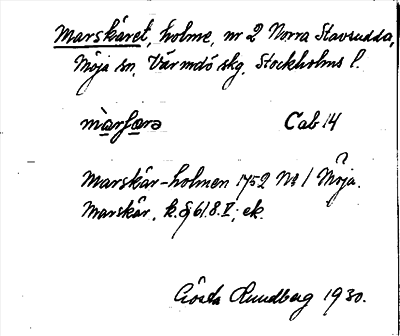 Marskäret, holme, nr 2 Norra Stavsudda,
Möja sn, Värmdö skg, Stockholms l.
Cab 14
?
Marskär-holmen 1752 No 1 Möja.
Marskär, k. § 61.8.V; ek.
Gösta Rundberg 1930.